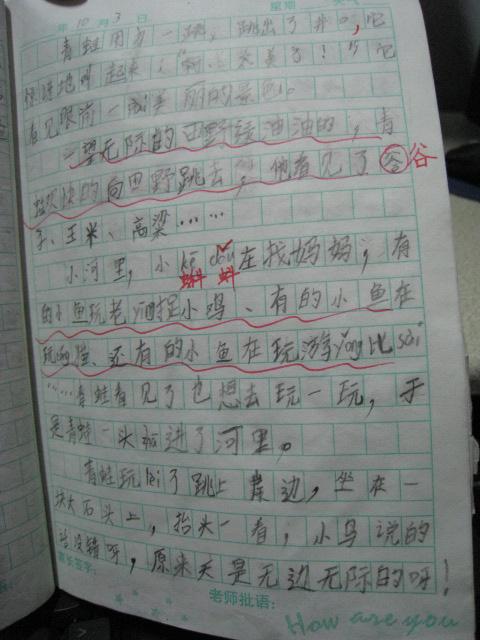 年 10 月 3 日 星期
青蛙用力一跳，跳出了井口，它
惊讶地叫起来：“啊！太美了！”它
看见眼前一片美丽的景色。
一望无际的田野绿油油的，青
蛙欢快的向田野跳去，他看见了谷 谷
子、玉米、高粱……
小河里，小 dǒu 在找妈妈，有 蝌蚪
的小鱼玩老yīng捉小鸡、有的小鱼在
玩、还有的小鱼在玩游yǒng比sài
……青蛙看见了也想去玩一玩，于
是青蛙一头扎进了河里。
青蛙玩lèi了跳上岸边，坐在一
块大石头上，抬头一看，小鸟说的
话没错呀，原来天是无边无际的呀！
家长签字：
老师批语：
How are you